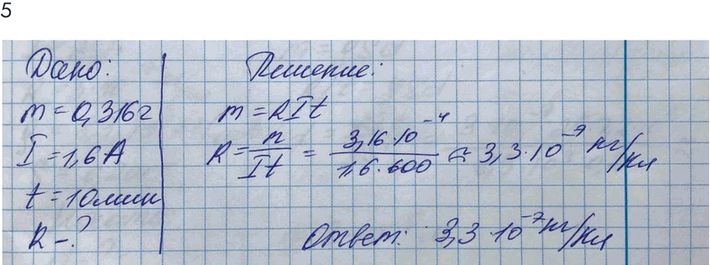 5
Дано: Решение:
m = 0,316г m = kIt
I = 1,6А k = m/It = 3,16·10⁻⁴/1,6·600 ≈ 3,3·10⁻⁹ кг/кл
t = 10мин
k – ? Ответ: 3,3·10⁻⁷ кг/кл